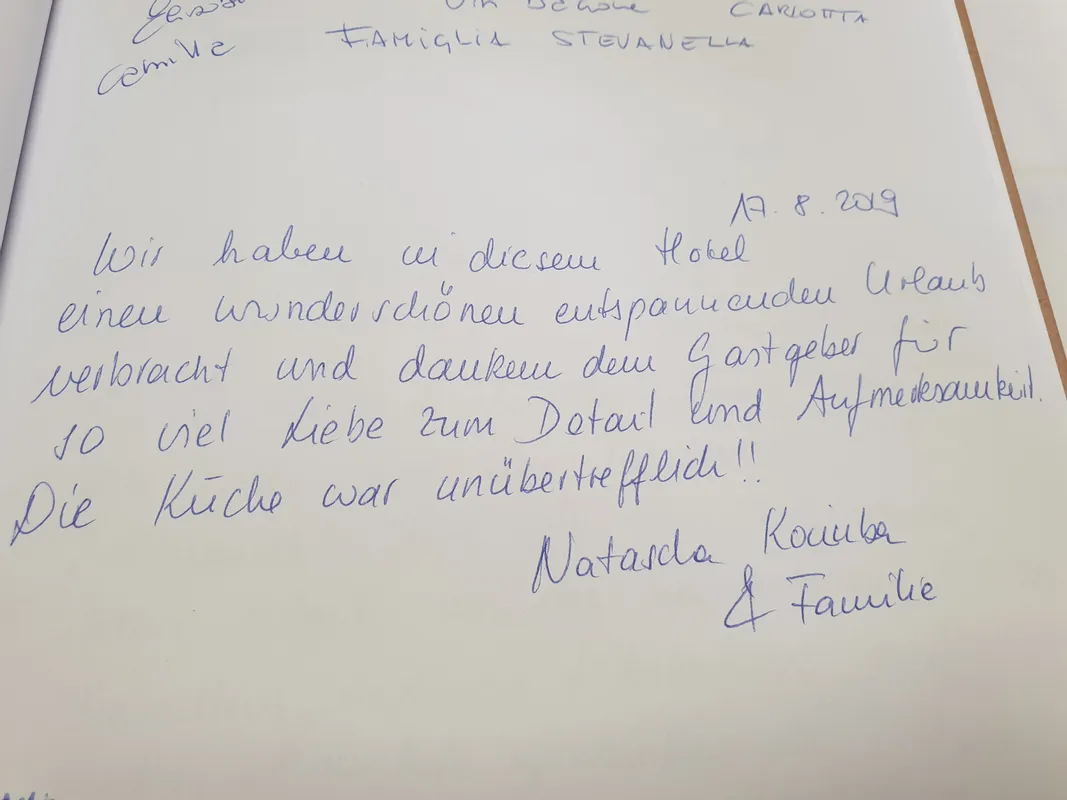 CARLOTTA
Camilla FAMIGLIA STEVANELLA
17. 8. 2019
Wir haben in diesem Hotel
einen wunderschönen entspannenden Urlaub
verbracht und danken dem Gastgeber für
so viel Liebe zum Detail und Aufmerksamkeit.
Die Küche war unübertrefflich!!
Natascha
& Familie